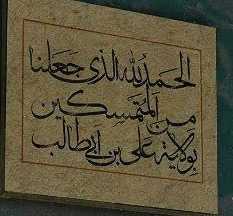 الحمد لله الذي جعلنا
من المتمسكين
بولاية علي بن ابيطالب